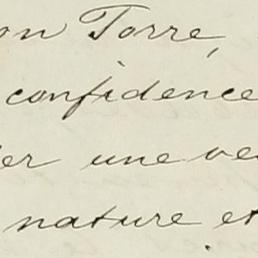 on Torre,
confidence
er une ve
nature et